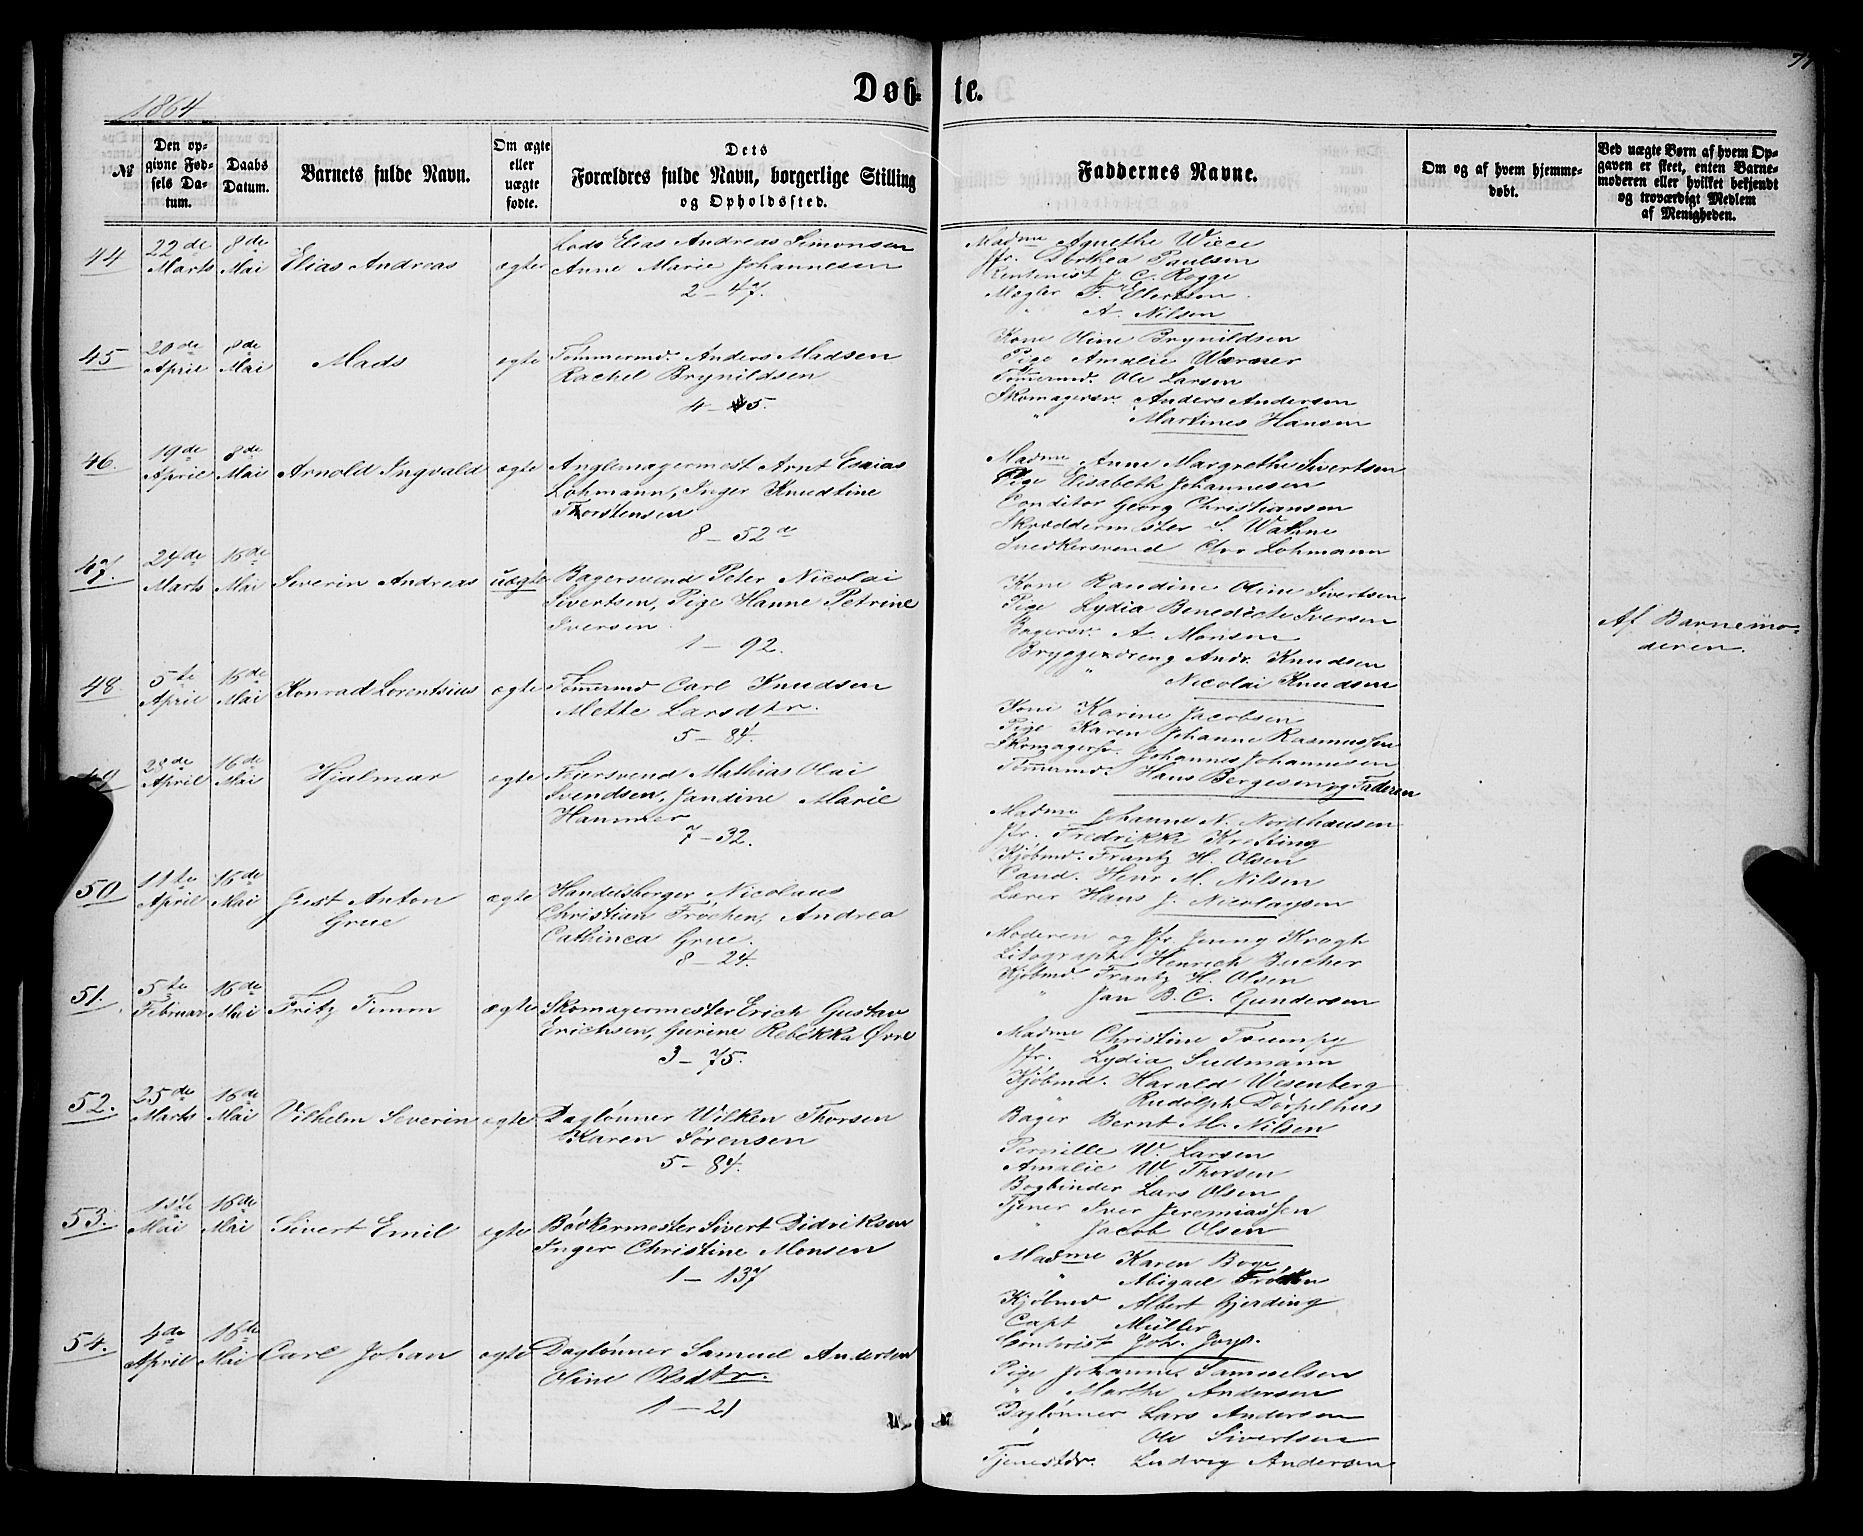 Døbte.
1864
№
Den opgivne Fødsels Datum.
Daabs Datum.
Barnets fulde Navn.
Om ægte eller uægte fødte.
Dets Forældres fulde Navn, borgerlige Stilling og Opholdssted.
Faddernes Navne.
Om og af hvem hjemmedøbt.
Ved uægte Børn af hvem Opgaven er skeet, enten Barnemoderen eller hvilket bekjendt og troværdigt Medlem af Menigheden.
44 22de Marts 8de Mai Elias Andreas ægte
Lods Elias Andreas Simonsen
Anne Marie Johannesen
2 - 47.
Madme Agnethe Wiece
Jfr. Dorthea Paulsen
Kontorist J. C. Rogge
Mægler F. Ellertsen
" A. Nilsen
45 20de April 8de Mai Mads ægte
Tømmermd. Anders Madsen
Rachel Brynildsen
4 - 5.
Kone Oline Brynildsen
Pige Amalie Wærner
Tømermd. Ole Larsen
Skomagersv. Anders Andersen
" Martines Hansen
46. 19de April 8de Mai Arnold Ingvald ægte
Anglemagermest Arnt Esaias
Lohmann, Inger Knudtine
Thorstensen
8 - 52de
Madme Anne Margrethe Sivertsen
Pige Elisabeth Johannesen
Conditor Georg Christiansen
Skræddermester S. Wathne
Snedkersvend Chr Lohmann
47. 24de Marts 16de Mai Severin Andreas uægte
Bagersvend Peter Nicolai
Sivertsen, Pige Hanne Petrine
Iversen
1 - 92.
Kone Randine Oline Sivertsen
Pige Lydia Benedicte Iversen
Bagersv. A. Monsen
Bryggedreng Andr. Knudsen
" Nicolai Knudsen
Af Barnemoderen.
48 5te April 16de Mai Konrad Lorentsius ægte
Tømermd Carl Knudsen
Mette Larsdtr.
5 - 84.
Kone Karine Jacobsen
Pige Karen Johanne Rasmussen
Skomagersv. Johannes Johannesen
Tømermd. Hans Bergesen og Faderen
49 28de April 16de Mai Hjalmar ægte
Feiersvend Mathias Olai
Svendsen, Jandine Marie
Hammer
7 - 32.
Madme Johanne N. Nordhausen
Jfr. Fredrikke Kresting
Kjøbmd. Frantz H. Olsen
Cand. Henr M. Nilsen
Lærer Hans J. Nicolaysen
50 11te April 16de Mai Just Anton Grue ægte
Handelsborger Nicolaus
Christian Frøchen, Andrea
Cathinca Grue.
8 - 24.
Moderen og Jfr. Jenny Krogh
Litograph Henrich Bucher
Kjøbmd Frantz H. Olsen
" Jan B. C. Gundersen
51. 5te Februar 16de Mai Fritz Timm ægte
Skomagermester Erich Gustav
Erichsen, Gurine Rebekka Øvre
3 - 75.
Madme Christine Trumpy
Jfr. Lydia Sudmann
Kjøbmd. Harald Wesenberg
" Rudolph Dørpelhus
Bager Bernt M. Nilsen
52. 25de Marts 16de Mai Vilhelm Severin ægte
Daglønner Wilken Thorsen
Karen Sørensen
5 - 84.
Pernille W. Larsen
Amalie W. Thorsen
Bogbinder Lars Olsen
Tjener Iver Jeremiassen
" Jacob Olsen
53. 11te Mai 16de Mai Sivert Emil ægte
Bødkermester Sivert Didriksen
Inger Christine Monsen
1 - 137
Madme Karen Boge
" Abigael Frøchen
Kjøbmd Albert Gjerding
Capt Müller
Contorist Joh. Joys.
54. 4de April 16de Mai Carl Johan ægte
Daglønner Samuel Andersen
Oline Olsdtr.
1 - 21
Pige Johanne Samuelsen
" Marthe Andersen
Dagløner Lars Andersen
" Ole Sivertsen
Tjenestdr. Ludvig Andersen